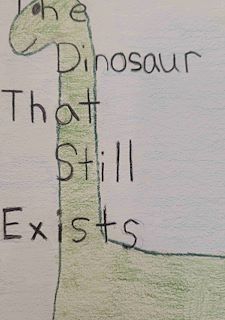 The
Dinosaur
That
Still
Exists